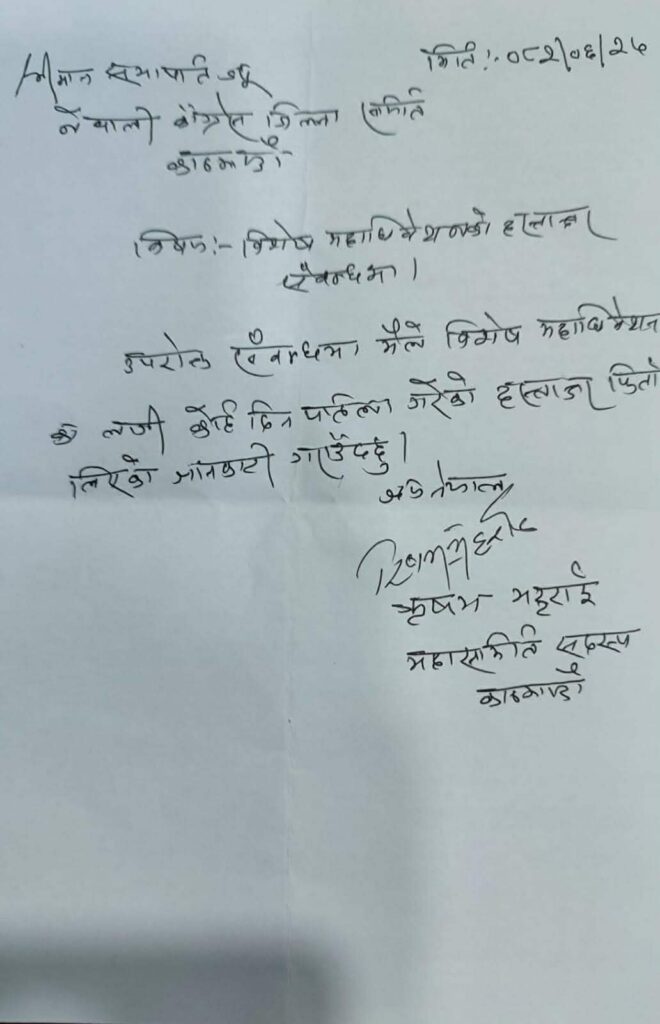 मिति:- ०८२/०६/२५
श्रीमान सभापति ज्यू
नेपाली काँग्रेस जिल्ला समिति
काठमाडौं
विषय:- विशेष महाधिवेशनको हस्ताक्षर
सँवन्धमा।
उपरोक्त सँवन्धमा मैले विशेष महाधिवेशन
को लागी केहि दिन पहिला गरेको हस्ताक्षर फिर्ता
लिएको जानकारी गराउँदछु।
जय नेपाल
ऋषभ भट्टराई
महासमिति सदस्य
काठमाडौं